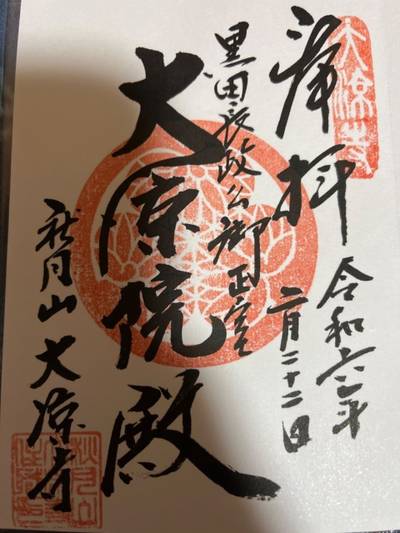 大涼寺
奉拝
令和六年
二月二十二日
黒田長政公御正室
大涼院殿
秋月山 大涼寺